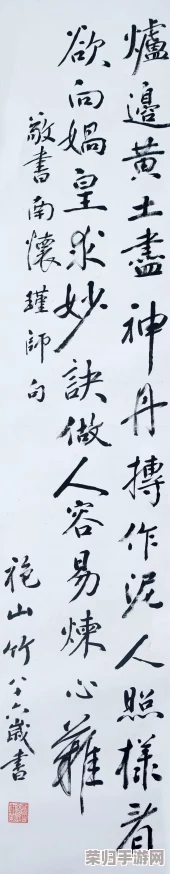 爐邊黃土盡神丹摶作泥人照樣看
欲向媧皇求妙訣做人容易煉心難
敬書南懷瑾師句
山竹八十六歲書
荣归手游网